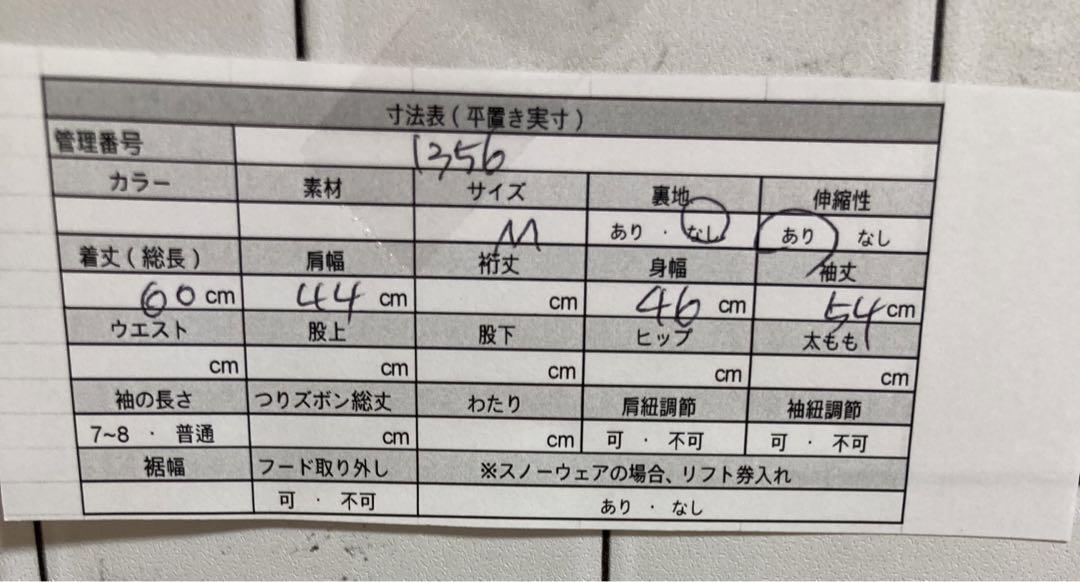 寸法表(平置き実寸)
管理番号 1356
カラー 素材 サイズ 裏地 伸縮性
M あり・なし あり なし
着丈(総長) 肩幅 裄丈 身幅 袖丈
60 cm 44 cm cm 46 cm 54 cm
ウエスト 股上 股下 ヒップ 太もも
cm cm cm cm cm
袖の長さ つりズボン総丈 わたり 肩紐調節 袖紐調節
7~8・普通 cm cm 可・不可 可・不可
裾幅 フード取り外し ※スノーウェアの場合、リフト券入れ
可・不可 あり・なし